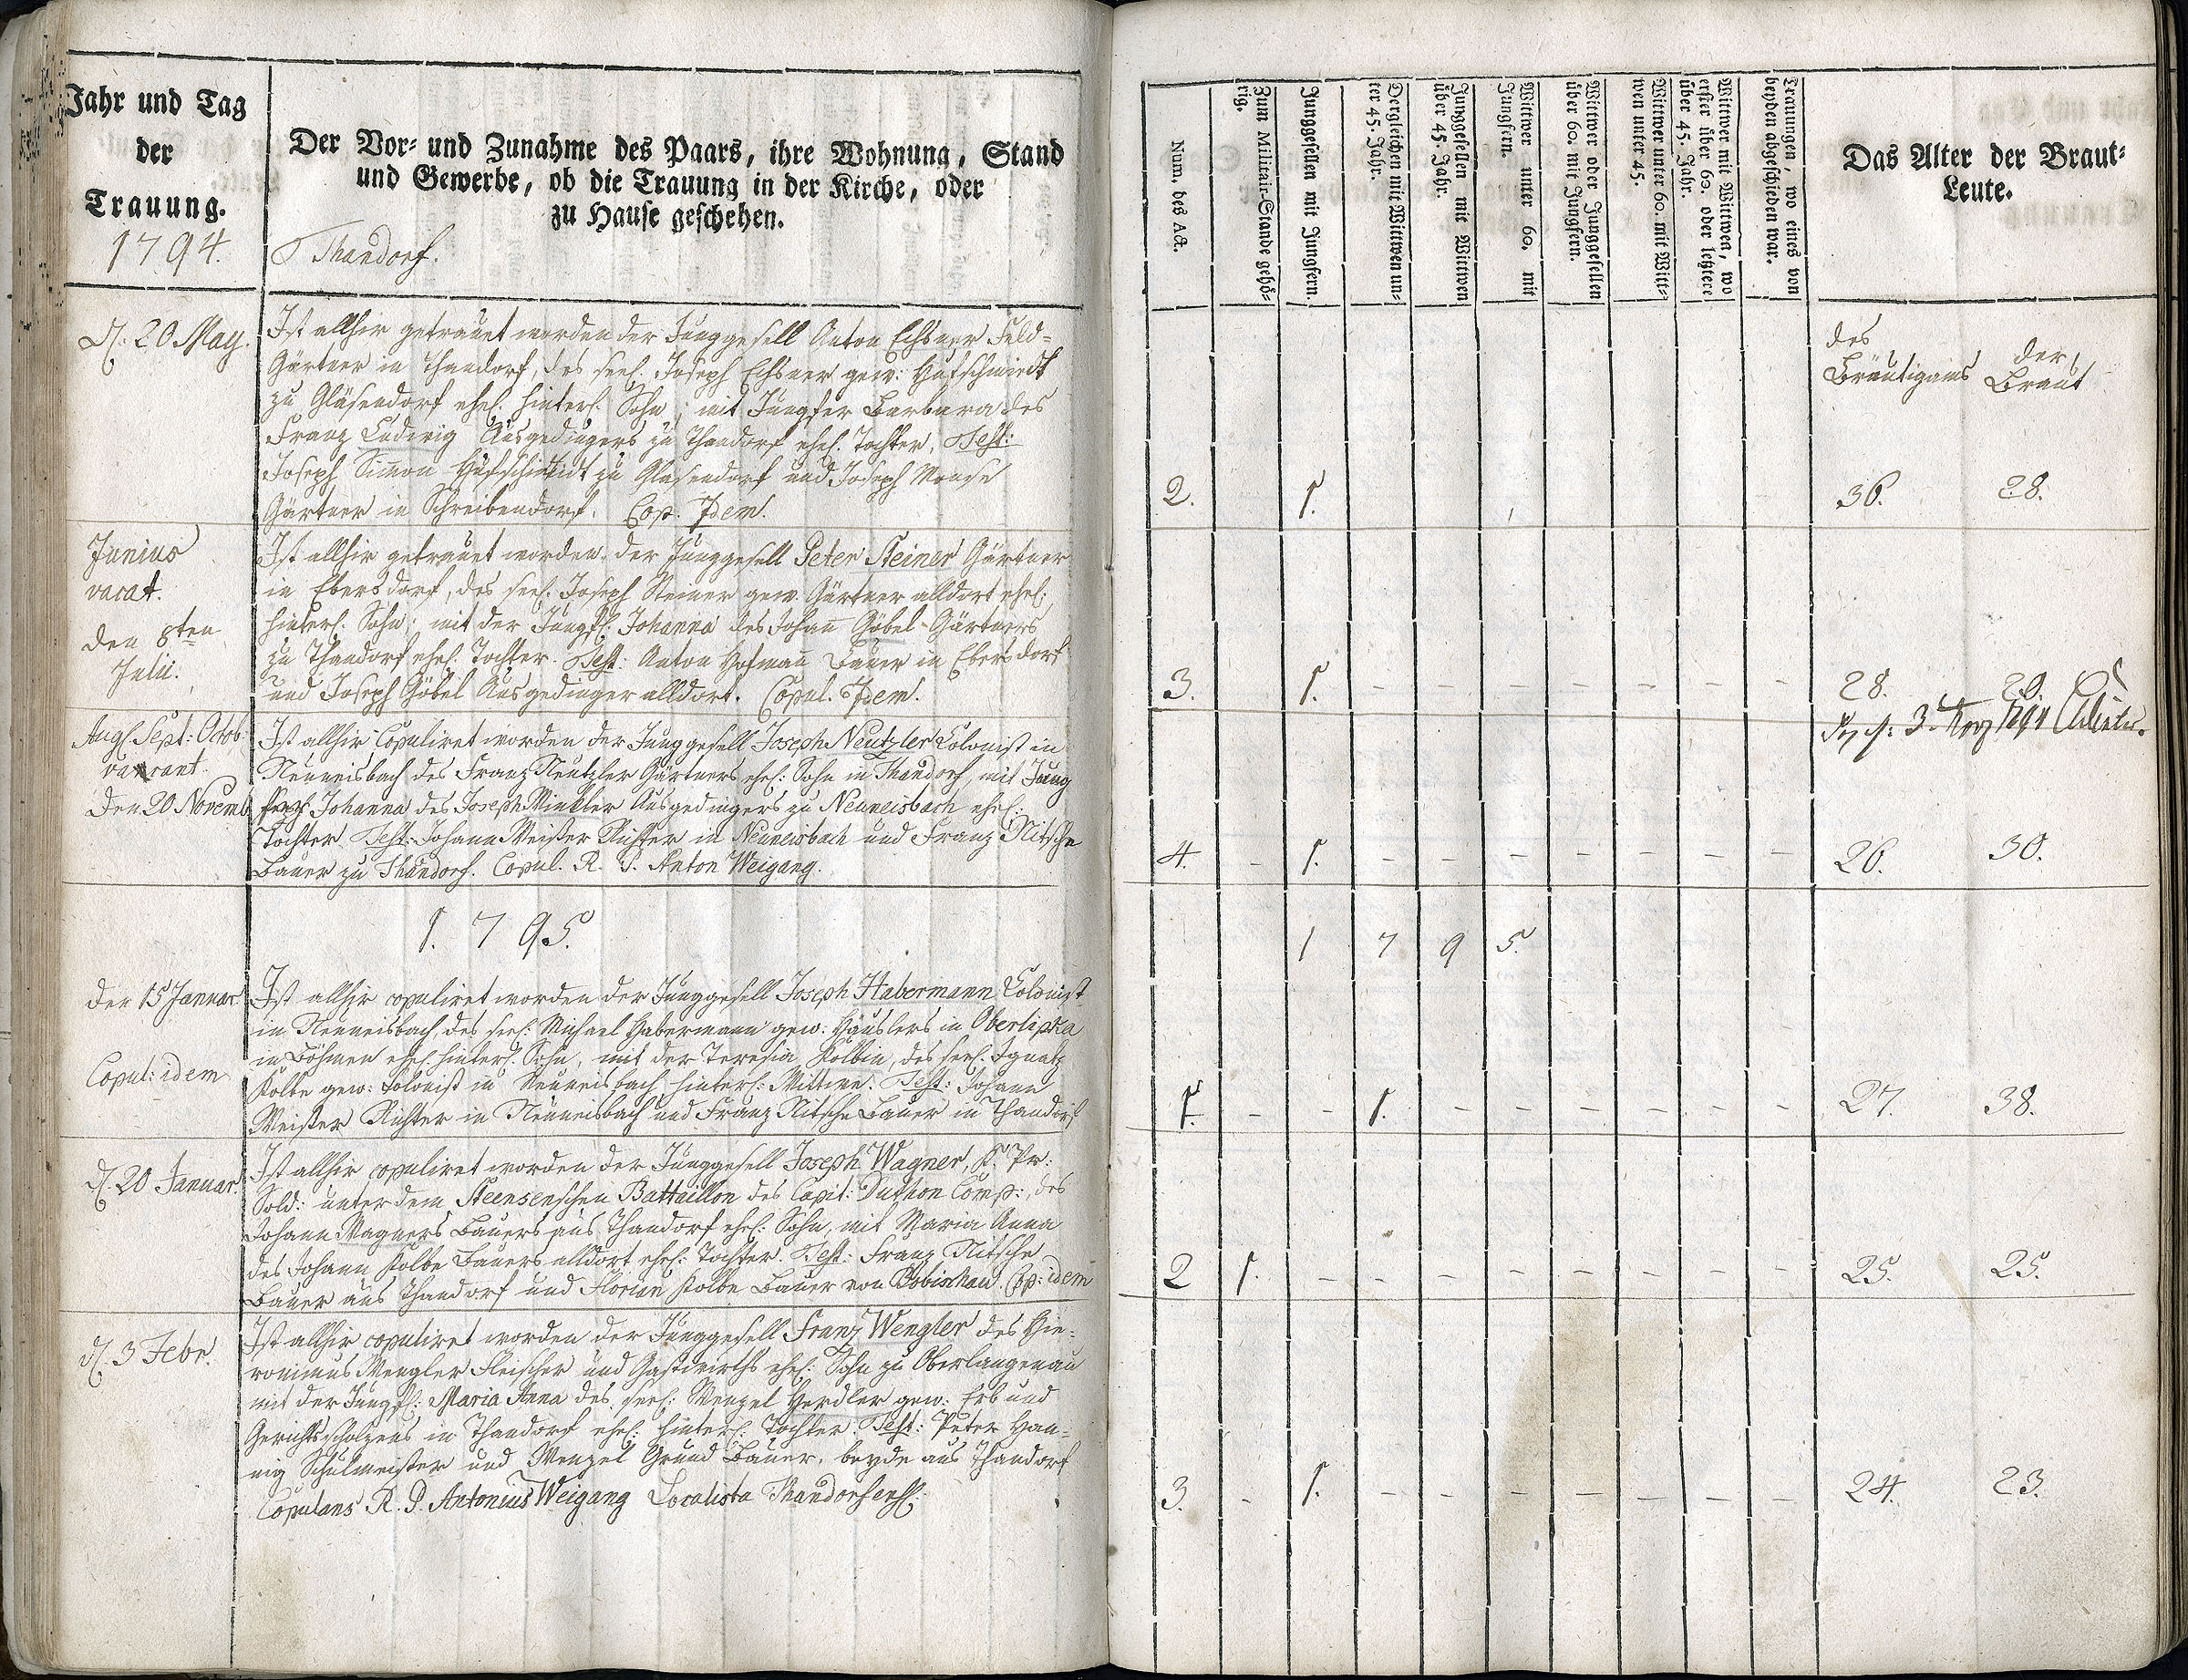 Jahr und Tag
der
Trauung.
1794.
Der Vor- und Zunahme des Paars, ihre Wohnung, Stand
und Gewerbe, ob die Trauung in der Kirche, oder
zu Hause geschehen.
Thandorf.
d. 20 May.
Ist allhir getrauet worden der Junggesell Anton Echsner Feld-
Gärtner in Thandorf, des seel. Joseph Echsner gew: Hufschmiedt
zu Gläsendorf ehel. hinterl. Sohn, mit Jungfer Barbara des
Franz Ludwig Ausgedingers zu Thandorf ehel. Tochter. Test:
Joseph Simon Hufschmidt zu Glasendorf und Joseph Monse
Gärtner in Schreibendorf. Cop. Idem.
Junius
vacat.
den 8ten
Julii.
Ist allhir getrauet worden der Junggesell Peter Steiner Gärtner
in Ebersdorf, des seel. Joseph Steiner gew. Gärtner alldort ehel:
hinterl. Sohn: mit der Jungf: Johanna des Johan̄ Göbel Gärtners
zu Thandorf ehel. Tochter. Test: Anton Hofman̄ Bauer in Ebersdorf
und Joseph Göbel Ausgedinger alldort. Copul. Idem.
Aug. Sept: Octob
vacant.
den 20 Novemb
Ist allhir Copuliret worden der Junggesell Joseph Neutzler Colonist in
Neuneisbach des Franz Neutzler Gärtners ehel: Sohn in Thandorf, mit Jung
Johanna des Joseph Winkler Ausgedingers zu Neuneisbach ehel:
Tochter Test: Johann Meißer Richter in Neuneisbach und Franz Nitsche
Bauer zu Thandorf. Copul. R. P. Anton Weigang.
1795.
den 15 Januar
Copul: idem
Ist allhir copuliret worden der Junggesell Joseph Habermann Colonist
in Neuneisbach, des seel: Michael Habermann gew: Häuslers in Oberlipka
in Böhmen ehel. hinterl. Sohn, mit der Teresia Kolbin, des seel. Ignatz
Kolbe gew: Colonist in Neuneisbach hinterl: Wittwe. Test: Johann
Meißer Richter in Neuneisbach und Franz Nitsche Bauer in Thandorf
d. 20 Januar.
Ist allhir copuliret worden der Junggesell Joseph Wagner, K. Pr:
Sold: unter dem Steensenschen Battaillon des Capit: Duthon Comp:, des
Johann Wagners Bauers aus Thandorf ehel: Sohn, mit Maria Anna
des Johann Kolbe Bauers alldort ehel: Tochter. Test: Franz Nitsche
Bauer aus Thandorf und Florian Kolbe Bauer von Bobischau. Cop: idem
d. 3 Febr.
Ist allhir copuliret worden der Junggesell Franz Wengler des Hie-
ronimus Wengler Fleischer und Gastwirths ehel: Sohn zu Oberlangenau
mit der Jungf: Maria Anna des seel: Wenzel Herdler gew: Erb und
Gerichtsscholzens in Thandorf ehel: hinterl: Tochter. Test: Peter Han-
nig Schulmeister und Wenzel Grund Bauer, beyde aus Thandorf
Copulans R. P. Antonius Weigang Localista Thandorfens:
Num. des Act.
Zum Militair-Stande gehö-
rig.
Junggesellen mit Jungfern.
Dergleichen mit Wittwen un-
ter 45. Jahr.
Junggesellen mit Wittwen
über 45. Jahr.
Wittwer unter 60. mit
Jungfern.
Wittwer oder Junggesellen
über 60. mit Jungfern.
Wittwer unter 60. mit Witt-
wen unter 45.
Wittwer mit Wittwen, wo
erster über 60. oder letztere
über 45. Jahr.
Trauungen, wo eines von
beyden abgeschieden war.
Das Alter der Braut-
Leute.
des
Bräutigams
der
Braut
2. 1. 36. 28.
3. 1. – – – – – – – 28. 20.
4. – 1. – – – – – – – 26. 30.
1 7 9 5.
1. – – 1. – – – – – – 27. 38.
2 1. – – – – – – – – 25. 25.
3. – 1. – – – – – – – 24. 23.